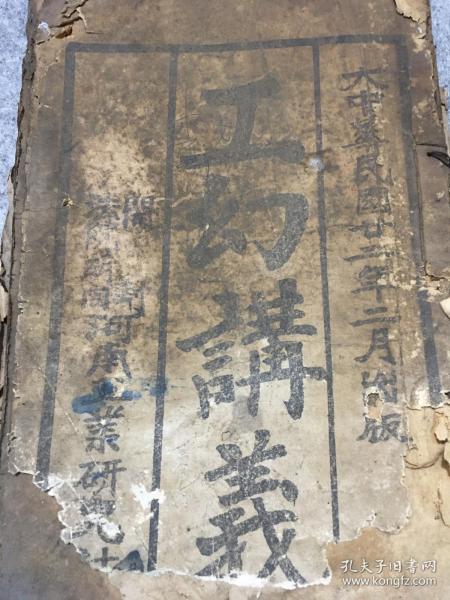 大中華民國廿二年二月出版
工幻講義
開封
河周工業研究社
孔夫子旧书网
www.kongfz.com